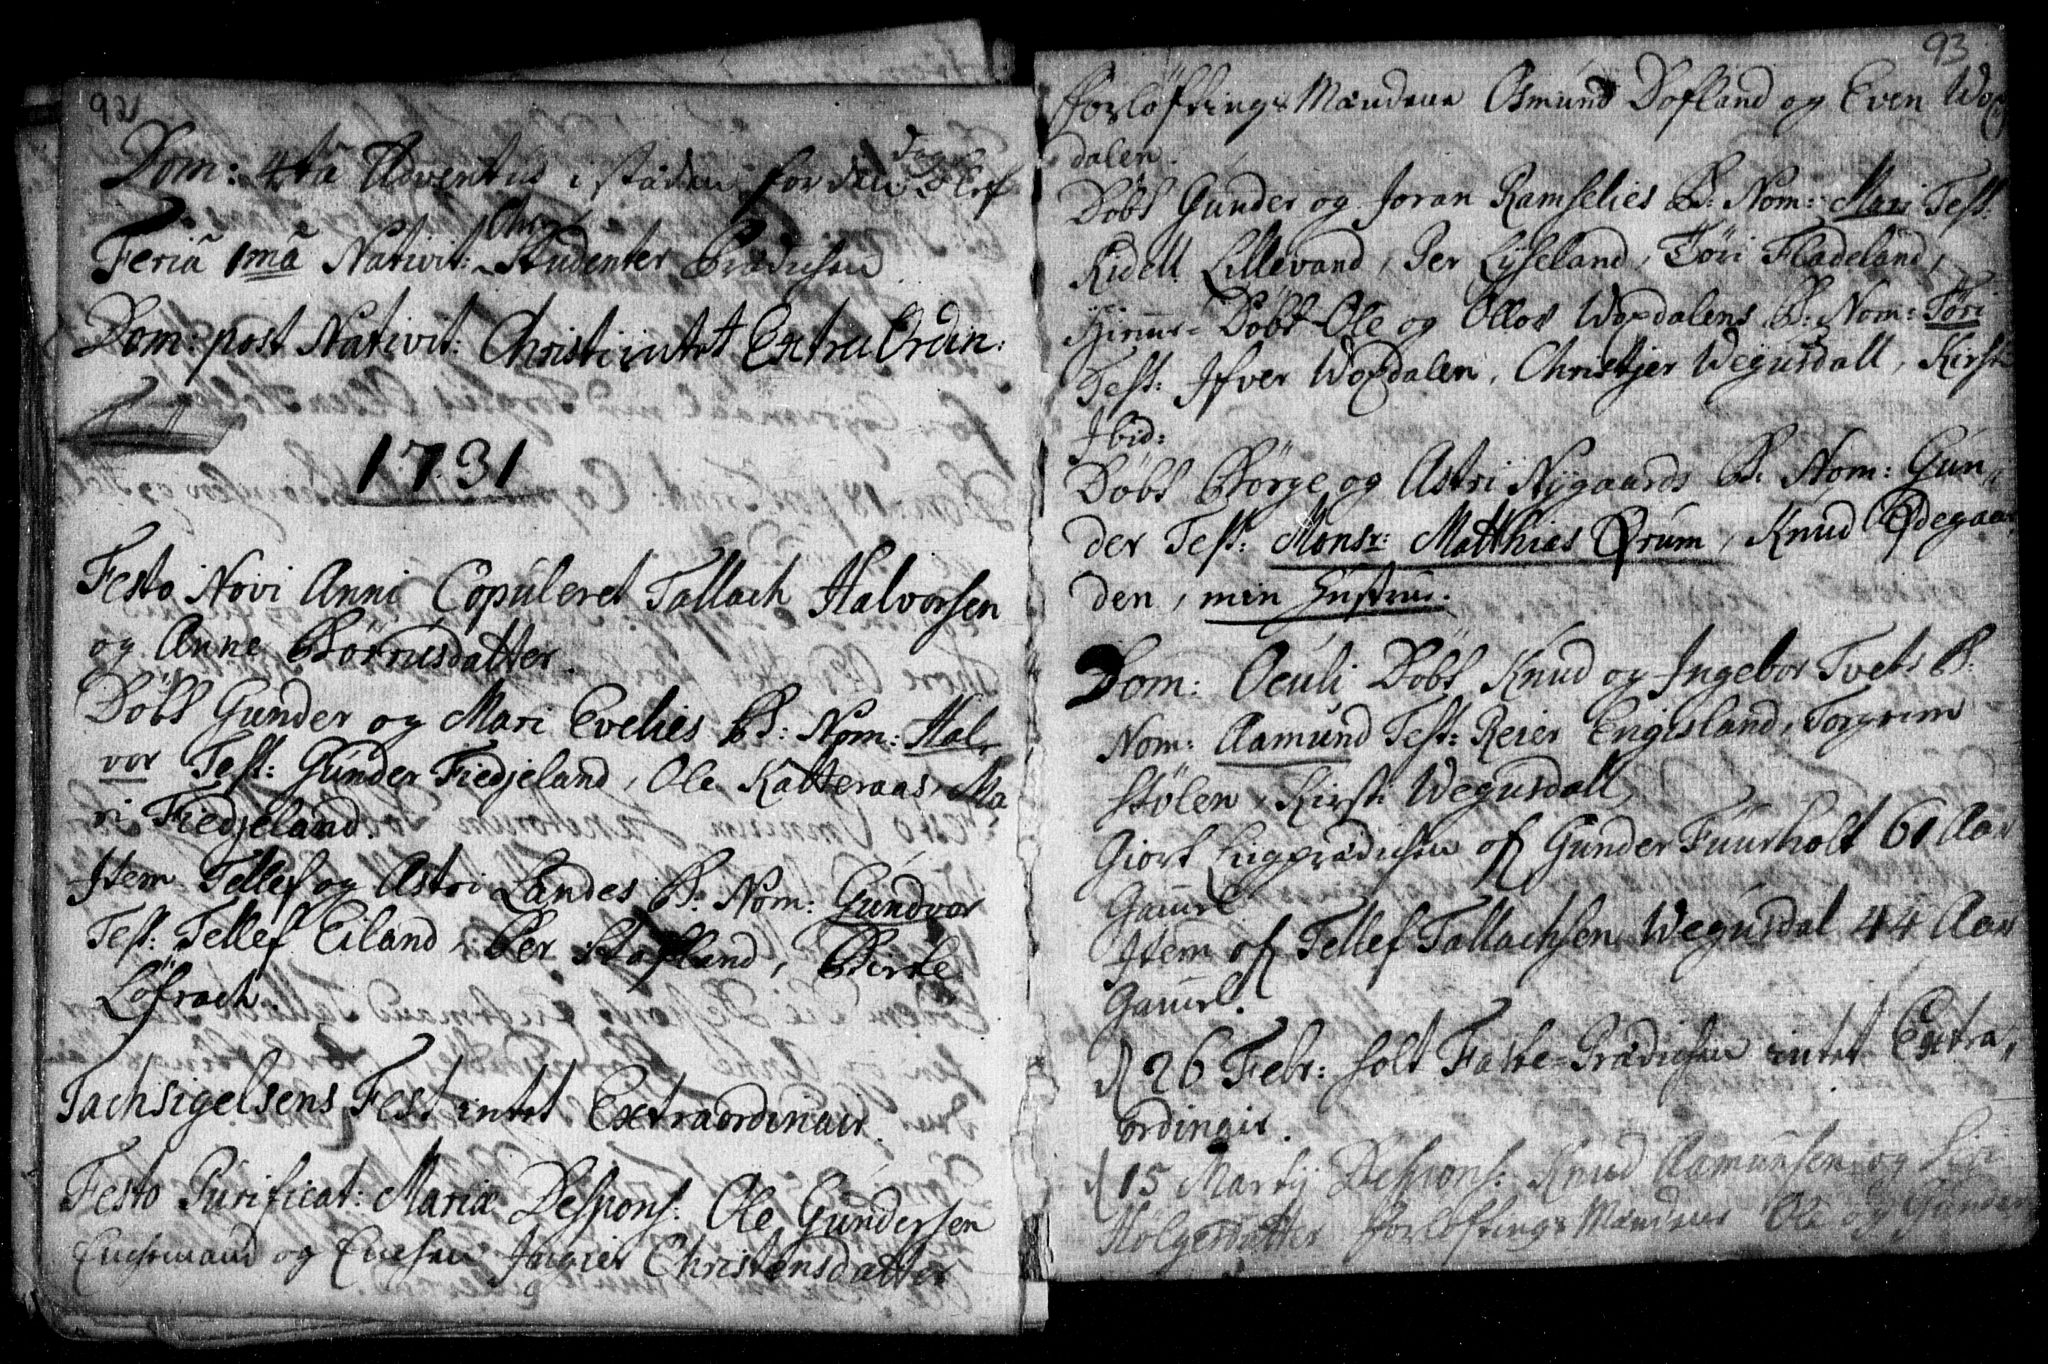 92
Dom: 4ta Adventus i stæden for den dag blef
Feriâ 1mâ Nativit: Chri: Studenter Prædichen
Dom: post Nativit: Christi intet Extra Ordin:
1731
Festo Novi Anni Copuleret Tallach Halvorsen
og Anne Børrusdatter.
Døbt Gunder og Mari Evelies B: Nom: Hal-
vor Test: Gunder Fiedjeland, Ole Katteraas, Ma
ri Fiedjeland.
Item Tellef og Astri Landes B: Nom: Gundvor
Test: Tellef Eiland, Per Stafland, Birte
Løfrach.
Tachsigelsens Fest intet Extraordinair.
Festo Purificat: Mariæ Despons: Ole Gundersen
Enchemand og Enchen Inger Christensdatter
93
Forløftings Mændene Osmund Dofland og Even Wop
dalen.
Døbt Gunder og Joran Ramselies B: Nom: Mari Test:
Kidell Lillevand, Per Lyseland, Tøri Fladeland,
Hiemme-Døbt Ole og Ollov Wopdalens B: Nom: Tøri
Test: Ifver Wopdalen, Christjer Wegusdall, Kirst
Ibid:
Døbt Børge og Astri Nygaards B: Nom: Gun-
der Test: Monsr: Matthias Ørum, Knud Ødegaar
den, min Hustrue.
Dom: Oculi Døbt Knud og Ingebor Tvets B:
Nom: Aamund Test: Reier Engesland, Torgrim
Stølen, Kirsti Wegusdall,
Giort Liigprædichen of Gunder Fuurholt 61 Aar
Gamel.
Item of Tellef Tallachsen Wegusdal 44 Aar
Gamel.
d 26 Febr: holt Faste-Prædichen intet Extra,
ordinair.
d 15 Martij Despons: Knud Aamundsen og Siri
Holgersdatter Forløftings Mændene Ole og Gunder